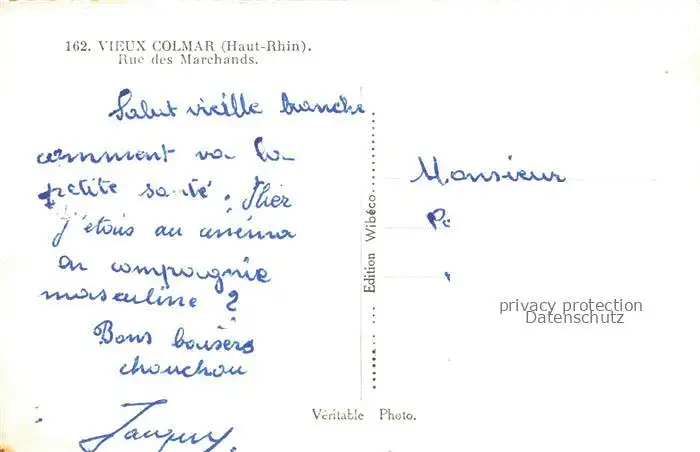 162. VIEUX COLMAR (Haut-Rhin).
Rue des Marchands.
Salut vieille branche
comment va la
petite santé. Hier
j'étais au cinéma
en compagnie
masculine ?
Bons baisers
chouchou
Monsieur
Edition Wibéco
privacy protection
Datenschutz
Véritable Photo.